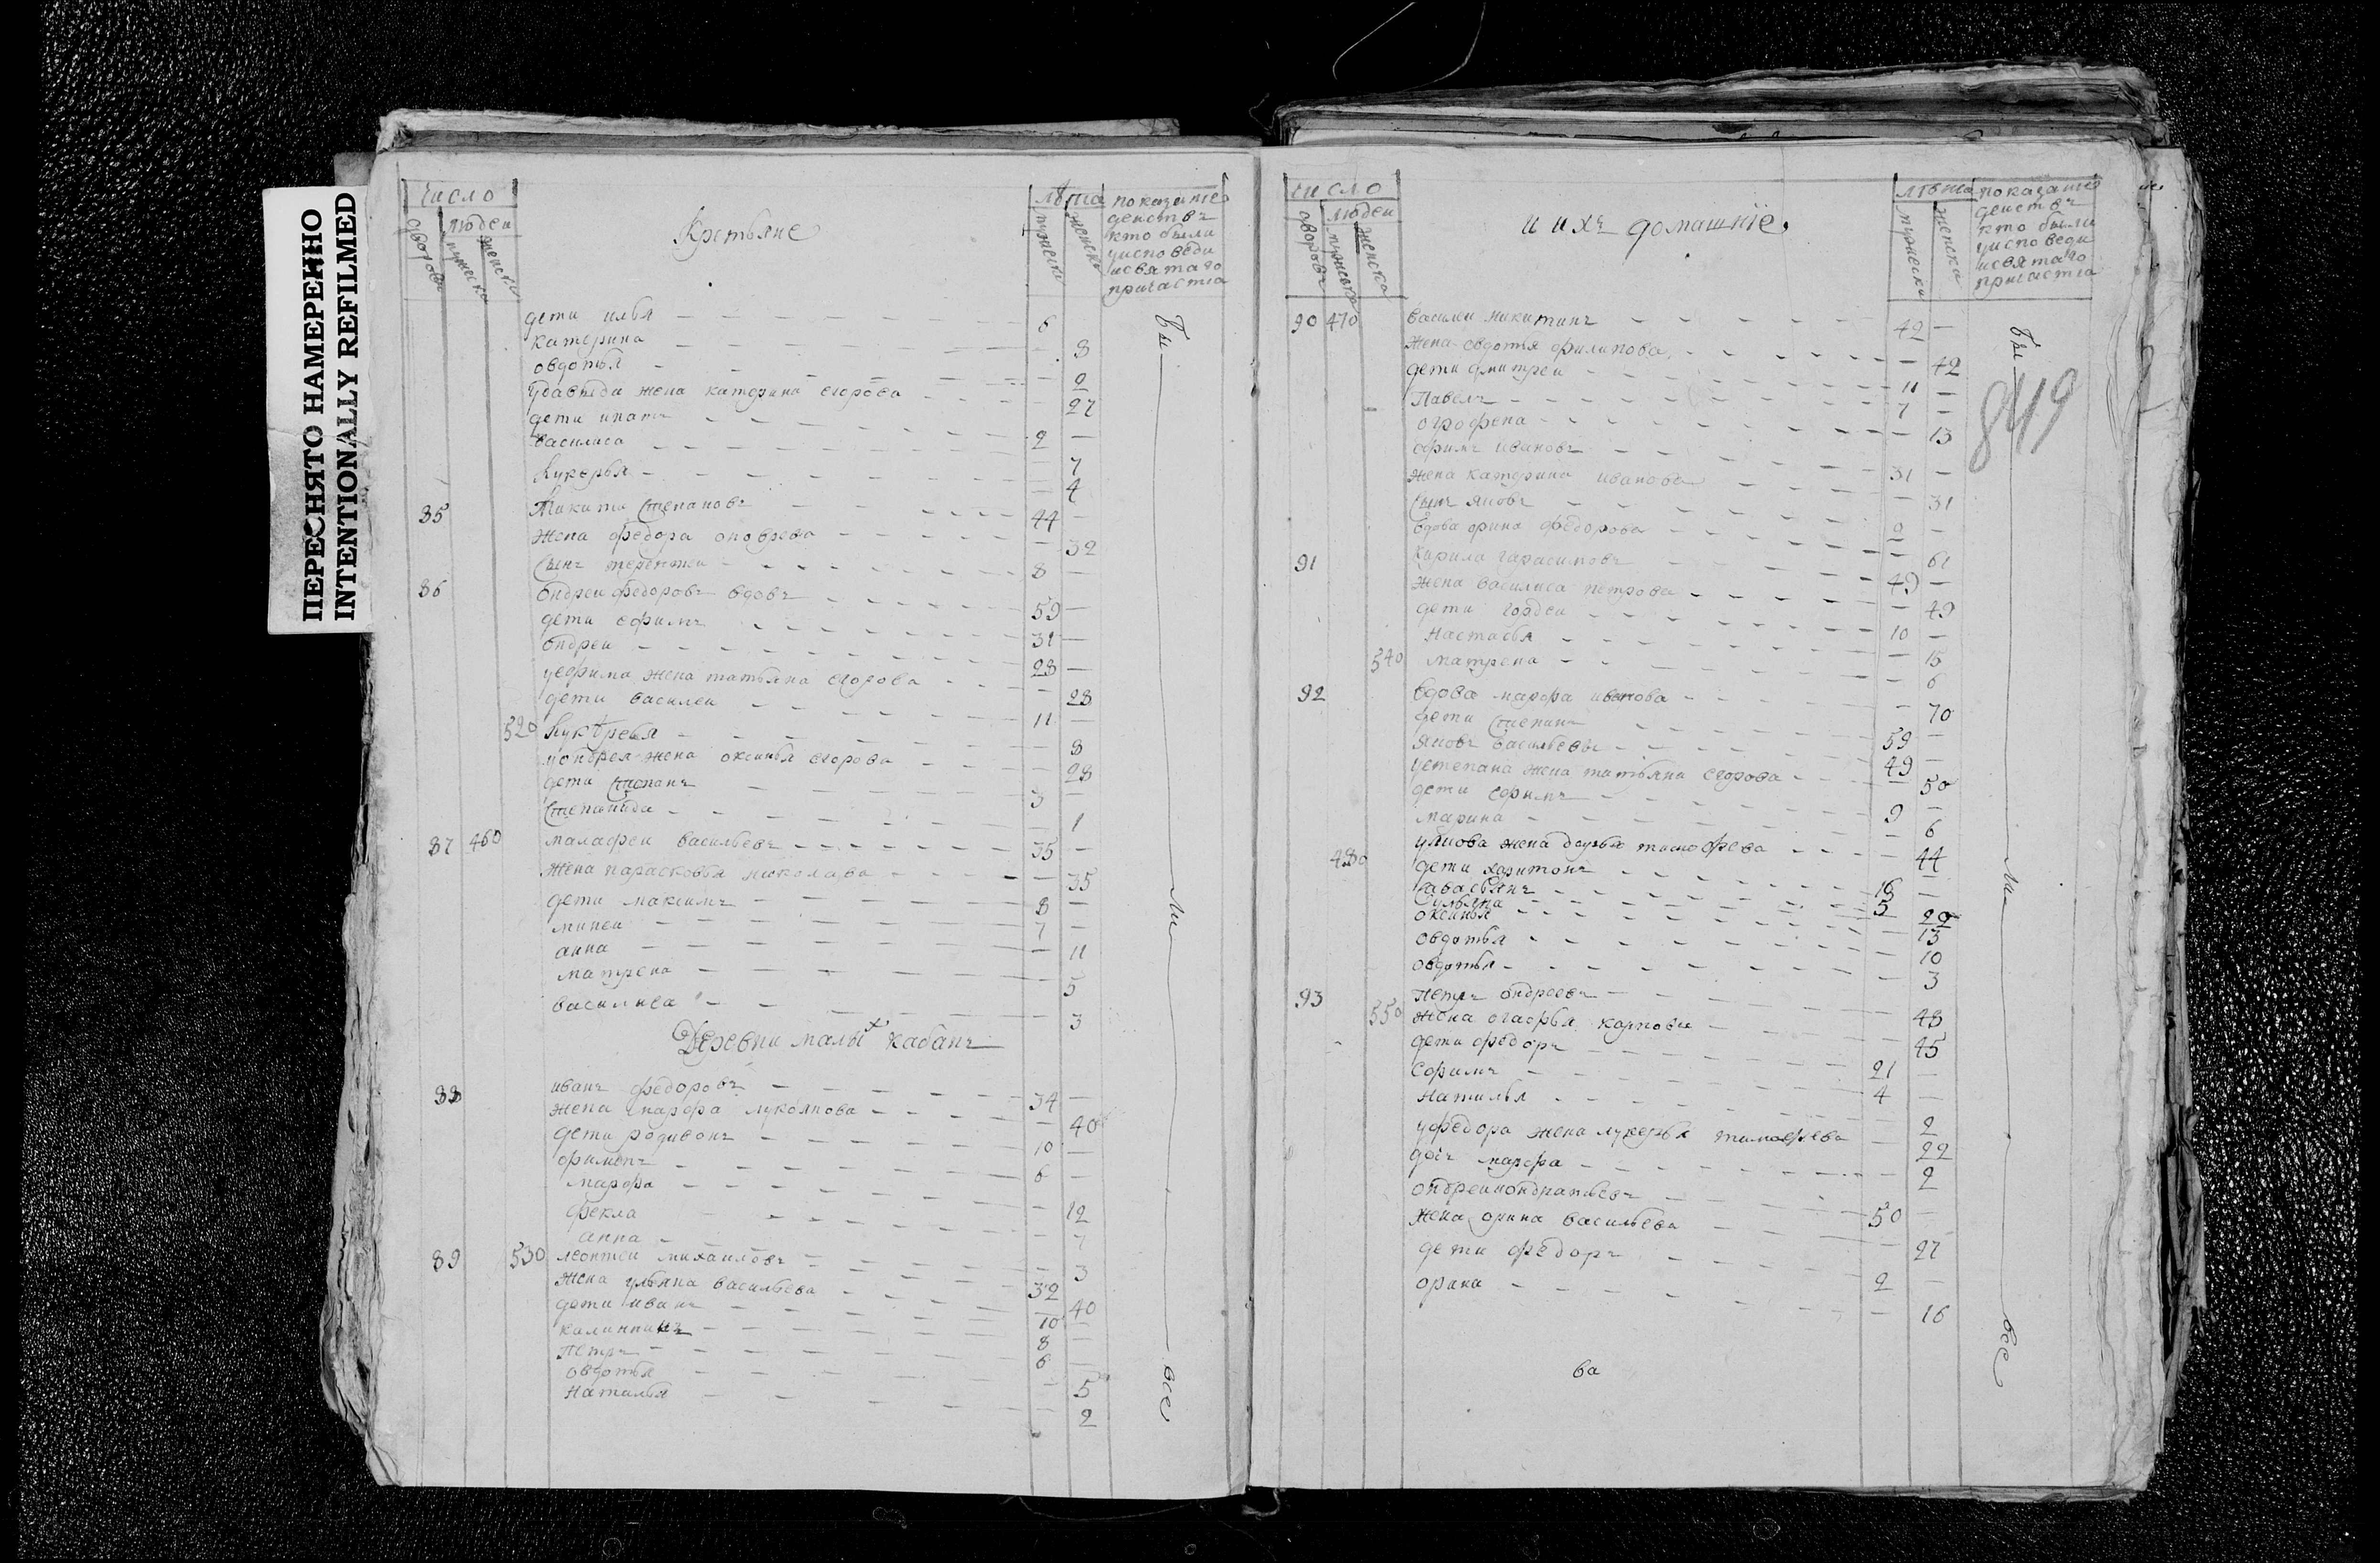 ПЕРЕСНЯТО НАМЕРЕННО
INTENTIONALLY REFILMED
число
лѣта
показание
дворовъ
людеи
мужеска
женска
Крстьяне
мужеска
женска
действъ
кто были
уисповеди
исвятаго
причастia
дети илья 6
катерина 8
овдотья 2
удавыда жена катерина егорова 27
дети ипатъ 2
василиса 7
лукерья 4
85 Никита степановъ 44
жена федора 32
сынъ терентеи 8
86 ондреи федоровъ вдовъ 59
дети ефимъ 31
ондреи 28
уефима жена татьяна егорова 28
дети василеи 11
520 лукерья 8
уондрея жена оксинья егорова 28
дети степанъ 3
степанида 1
87 460 малафеи васильевъ 35
жена парасковья николава 35
дети максимъ 8
минеи 7
анна 11
матрена 5
василиса 3
Деревни малых кабанъ
88 иванъ федоровъ 34
жена марфа лукоянова 40
дети родивонъ 10
филипъ 6
марфа 12
фекла 7
анна 3
89 530 леонтеи михаиловъ 32
жена ульяна васильева 40
дети иванъ 10
калинникъ 8
петръ 6
овдотья 5
наталья 2
бы ли все
число
дворовъ
людеи
мужеска
женска
и ихъ домашнiе
лѣта
мужеска
женска
показание
действъ
кто были
уисповеди
исвятаго
причастia
849
90 470 василеи никитинъ 42
жена евдотья филипова 42
дети дмитреи 11
Павелъ 7
огрофена 13
ефимъ ивановъ 31
жена катерина иванова 31
сынъ яковъ 2
вдова орина федорова 61
91 кирила гарасимовъ 49
жена василиса петрова 49
дети гордеи 10
настасья 15
540 матрена 6
92 вдова марфа иванова 70
дети степанъ 59
яковъ васильевы 49
устепана жена татьяна егорова 50
дети ефимъ 9
марина 6
уякова жена дарья тимофеева 44
480 дети харитонъ 16
савастьянъ 5
ульяна 20
оксинья 13
овдотья 10
овдотья 3
93 петръ ондреевъ 48
550 жена огафья карпова 45
дети федоръ 21
ефимъ 4
наталья 2
уфедора жена лукерья тимофеева 22
дочь марфа 2
ондреи кондратьевъ 50
жена орина васильева 27
дети федоръ 2
орина 16
ва
бы ли все